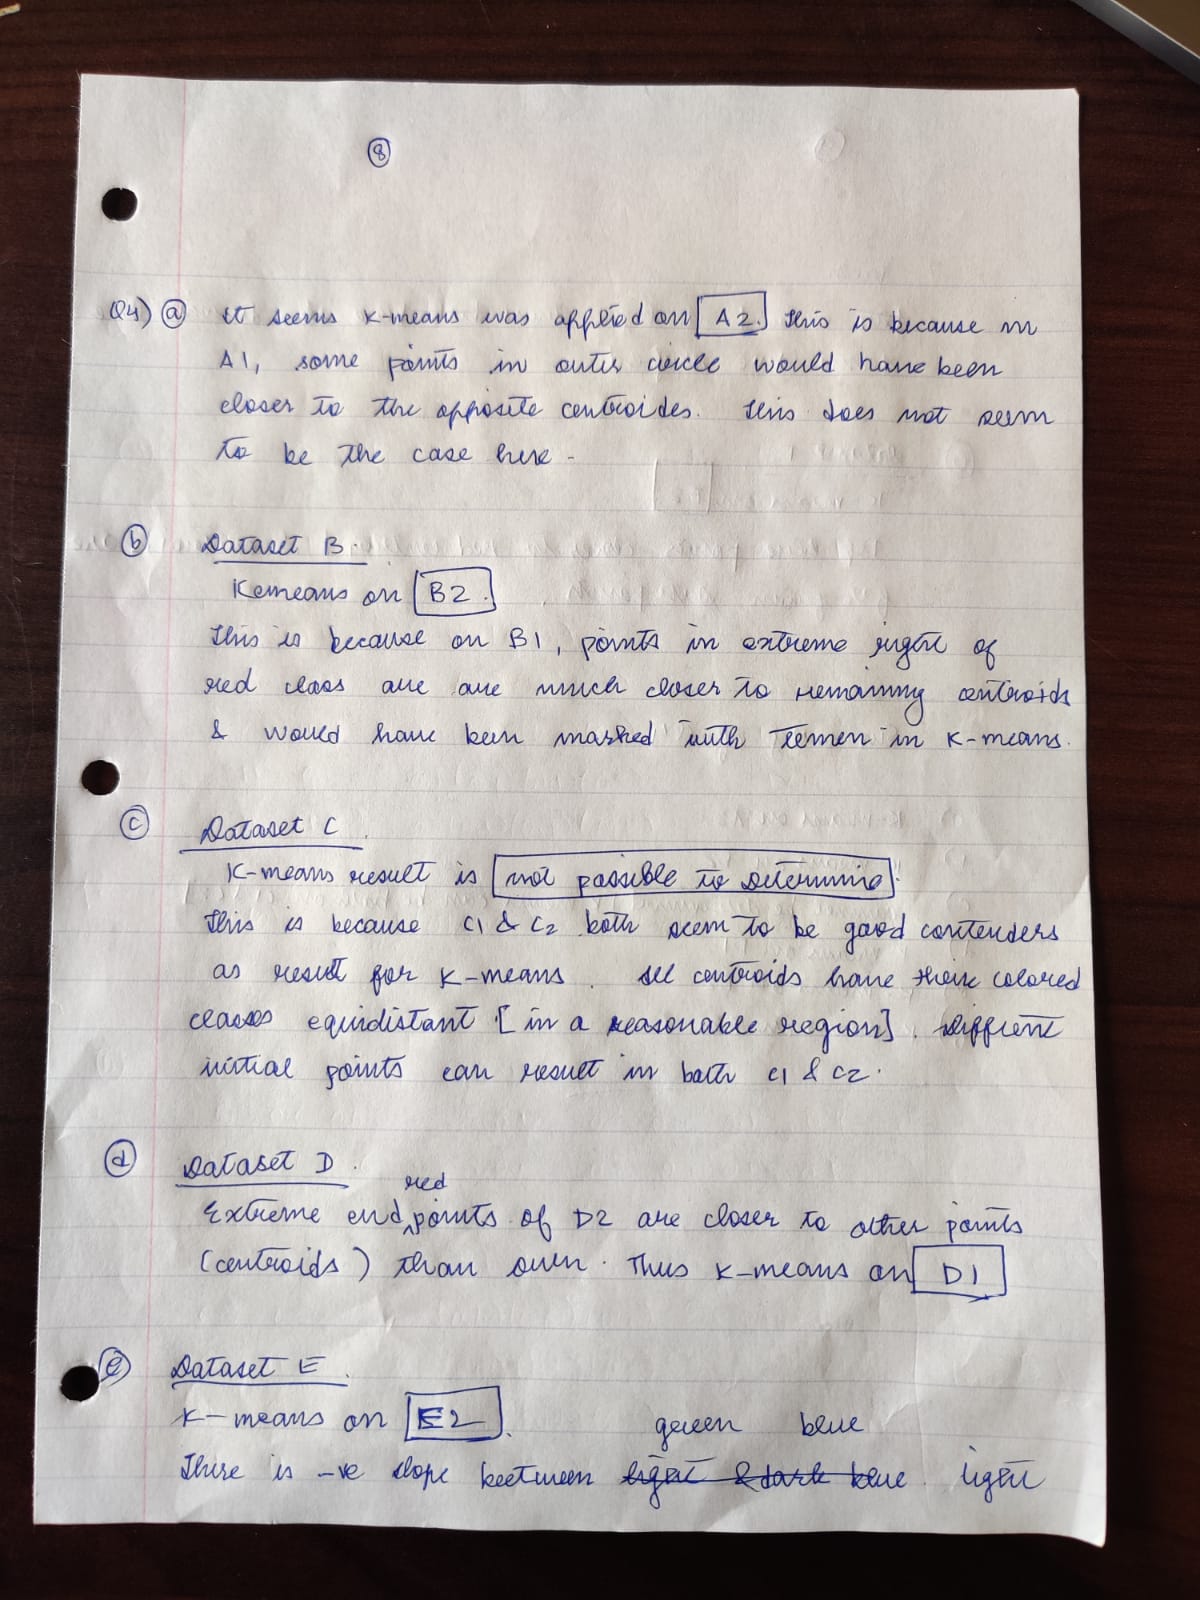 8
Q4) a It seems K-means was applied on A2. This is because in
A1, some points in outer circle would have been
closer to the opposite centroides. This does not seem
to be the case here -
b Dataset B.
Kemeans on B2.
This is because on B1, points in extreme right of
red class are are much closer to remaining centroids
& would have been marked with in K-means.
c Dataset C.
K-means result is not possible to determine.
This is because C1 & C2 both seem to be good contenders
as result for K-means. All centroids have their colored
classes equidistant [in a reasonable region]. Diffrent
initial points can result in both C1 & C2.
d Dataset D.
red
Extreme end points of D2 are closer to other points
(centroids) than own. Thus K-means on D1
e Dataset E.
K-means on E2.
green blue
There is -ve slope between light & dark blue. light